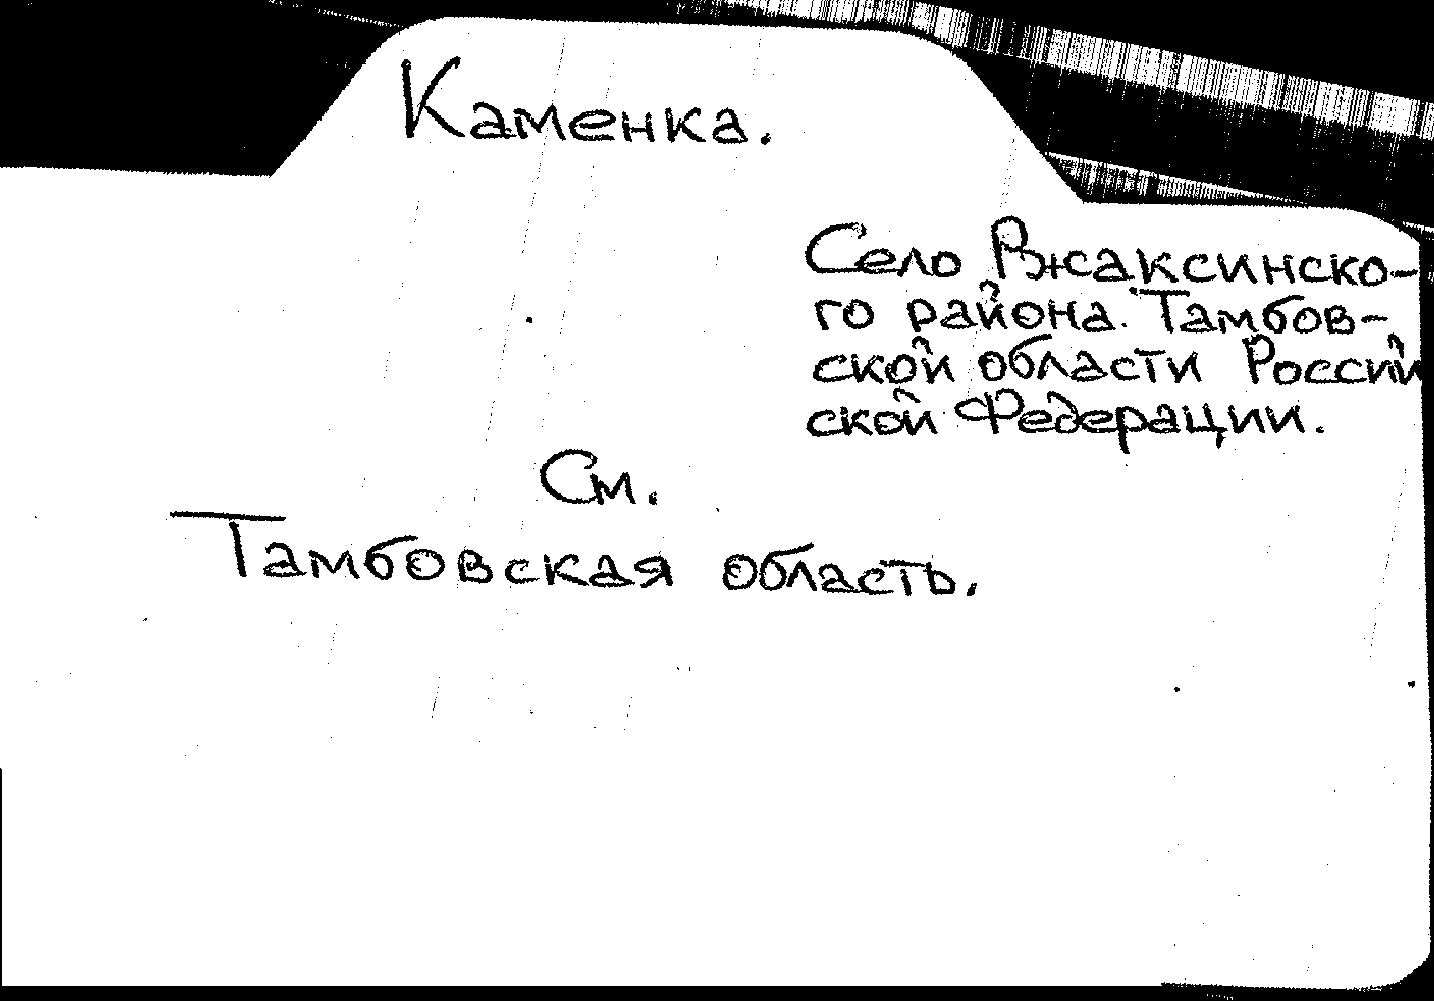 Каменка.
Село Вжаксинско-
го района. Тамбов-
ской области Россий
ской Федерации.
См.
Тамбовская область.